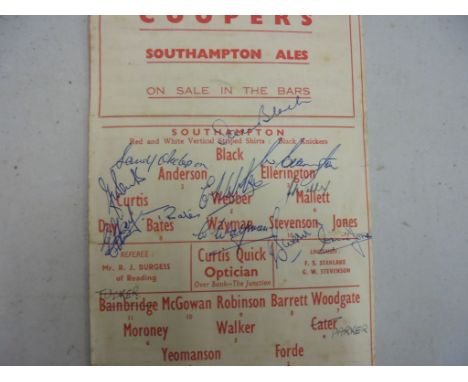 COOPERS
SOUTHAMPTON ALES
ON SALE IN THE BARS
SOUTHAMPTON
Red and White Vertical Striped Shirts Black Knickers
Black
Anderson Ellerington
Curtis Webber Mallett
Day Bates Wayman Stevenson Jones
REFEREE:
Mr. R. J. BURGESS
of Reading
Curtis Quick
Optician
Over Bank—The Junction
F. S. STANLAKE
C. W. STEVENSON
Bainbridge McGowan Robinson Barrett Woodgate
11 10 9
Moroney Walker Cater
PARKER
Yeomanson Forde